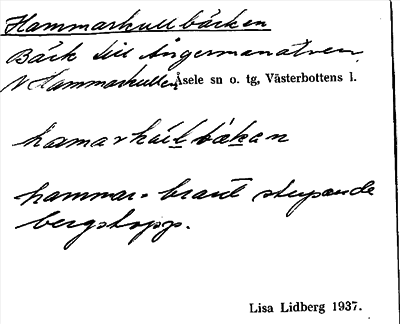 Hammarkullbäcken
Bäck till Ångermanälven
N Hammarkullen Åsele sn o. tg, Västerbottens l.
hamarkúllbäkan
hammar = brant stupande
bergstopp.
Lisa Lidberg 1937.